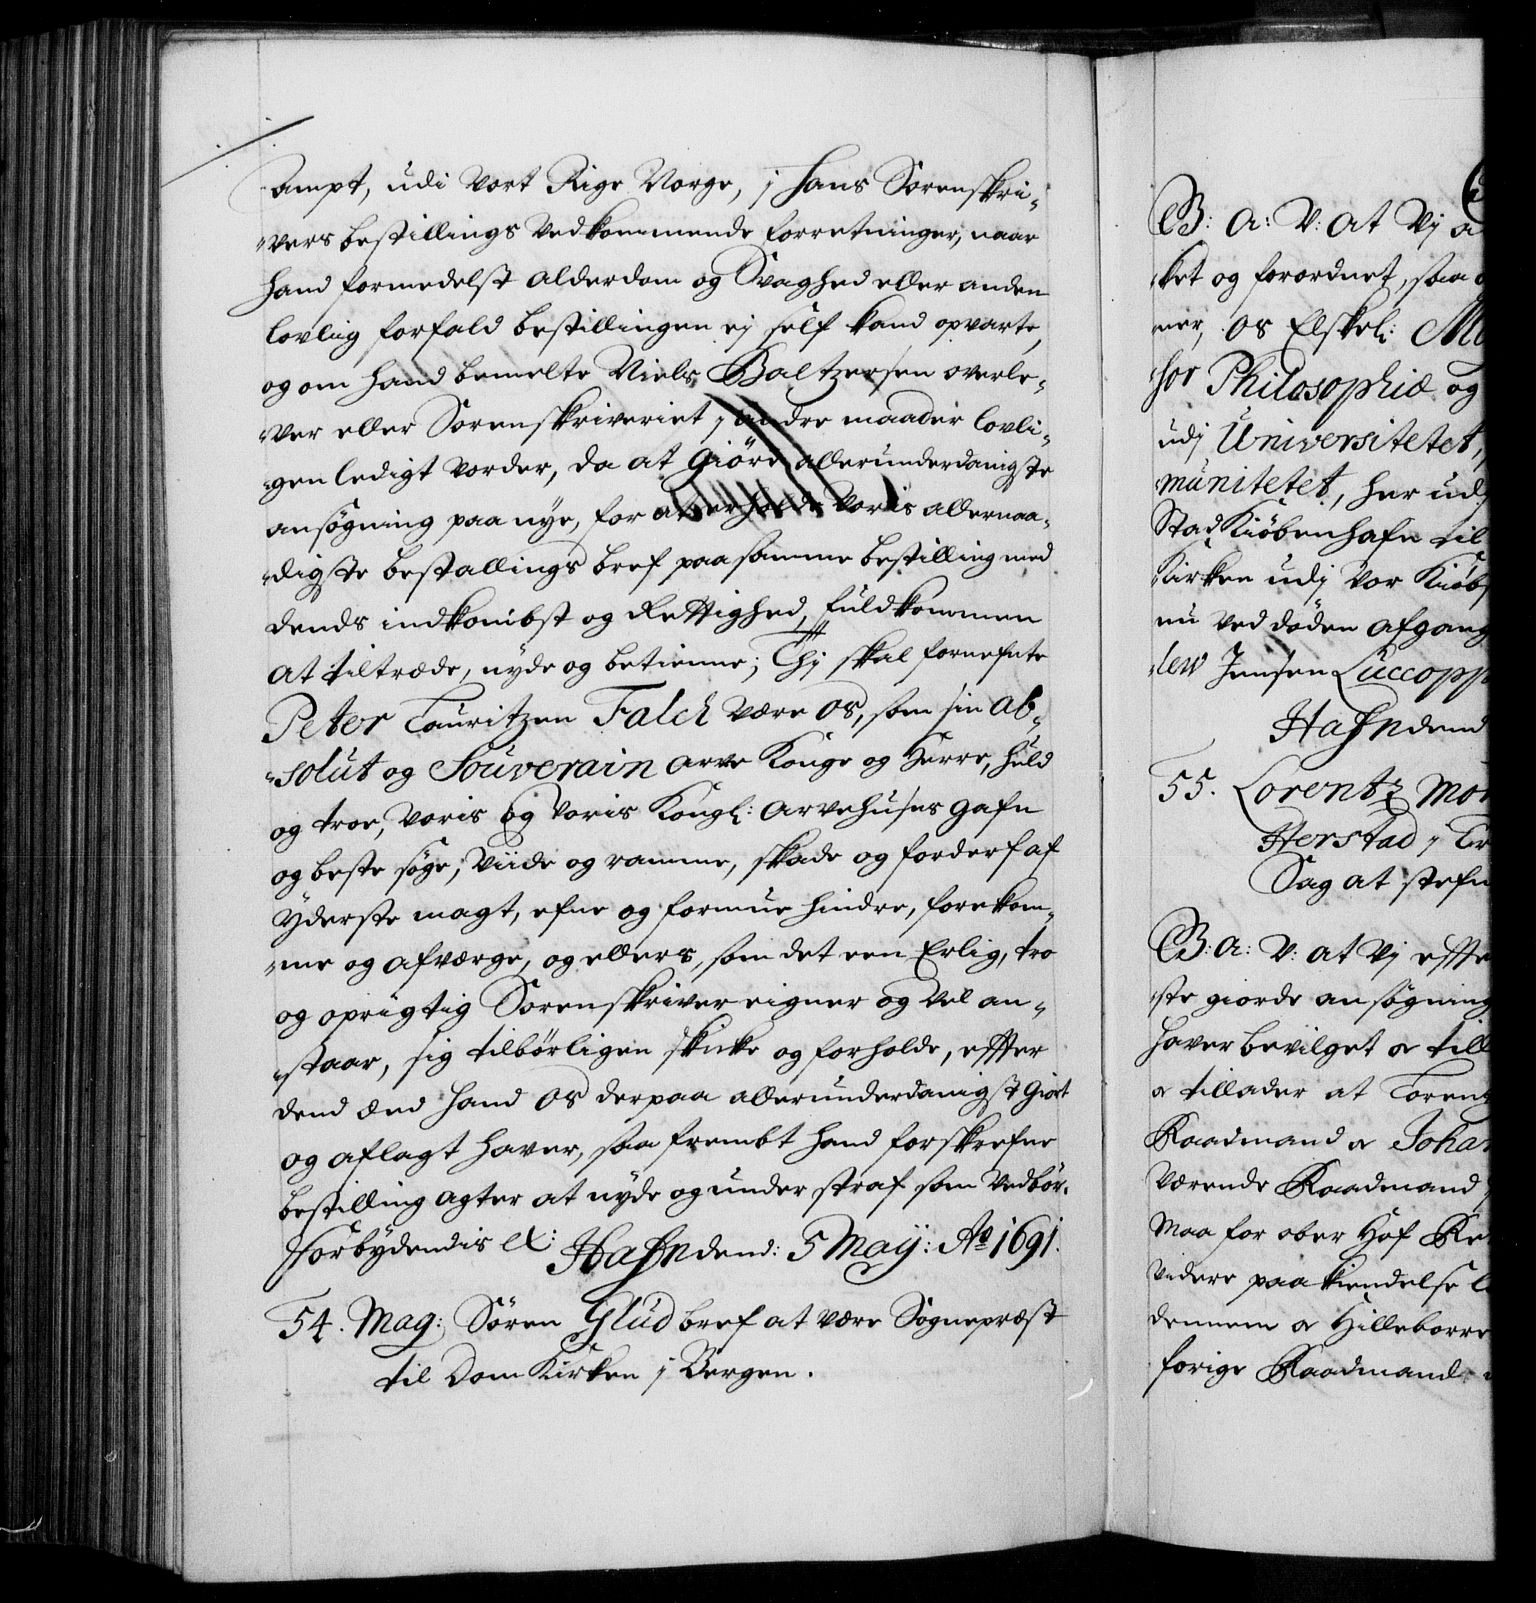 Ampt, udi Vort Rige Norge, j hans Sorenskri-
-vers bestillings Vedkommende forretninger, naar
hand formedelst Alderdom og Svaghed eller anden
lovlig forfald bestillingen ej self kand opvarte,
og om hand bemelte Niels Baltzersen overle-
-ver eller Sorenskriveriet j andre maader lovli-
-gen ledigt vorder, da at Giöre allerunderdanigste
ansøgning paa nye, for at erholde Voris allernaa-
-digste bestallings bref paa samme bestilling med
dends indkombst og Rettighed, fuldkommen
at tiltræde, nyde og betienne; Thj skal fornefnte
Peter Lauritzen Falch være Os, som sin Ab-
-solut og Souverain Arve Konge og Herre, huld
og troe, Voris og Voris Kongl: Arvehuses gafn
og beste søge, Viide og ramme, skade og forderf af
Yderste magt, efne og formue hindre, forekom-
-me og afværge, og ellers, som det een Erlig, tro
og oprigtig Sorenskriver eigner og Vel an-
-staar, sig tilbørligen skicke og forholde, effter
dend Æed hand Os derpaa allerunderdanigst Giort
og aflagt haver, saa frembt hand forskrefne
bestilling agter at nyde og under straf som Vedbør.
Forbydendis &: Hafn dend: 5 Maij: Ao 1691.
54. Mag: Sören Glud bref at være Sognepræst
til Dom Kirken j Bergen.
G: A: V: At Vj
-ket og forordnet, saa
-ner, Os Elskel:
-sor Philosophiæ og
udj Universitetet,
-munitetet, her udj
Stad Kiöbenhafn til
Kirken udj Vor Kiöb
nu ved døden afgang
-lew Jensen Luccopp
Hafn dend
55. Lorentz Mor
Herstad j
Sag at stefn
G: A: V: At Vj effte
-ste giorde ansøgning
haver bevilget og till
og tillader at Lorentz
Raadmand og Johan
Værende Raadmand
Maa for ober Hof Ret
Videre paakiendelse
dennem og Hilleborre
forige Raadmand